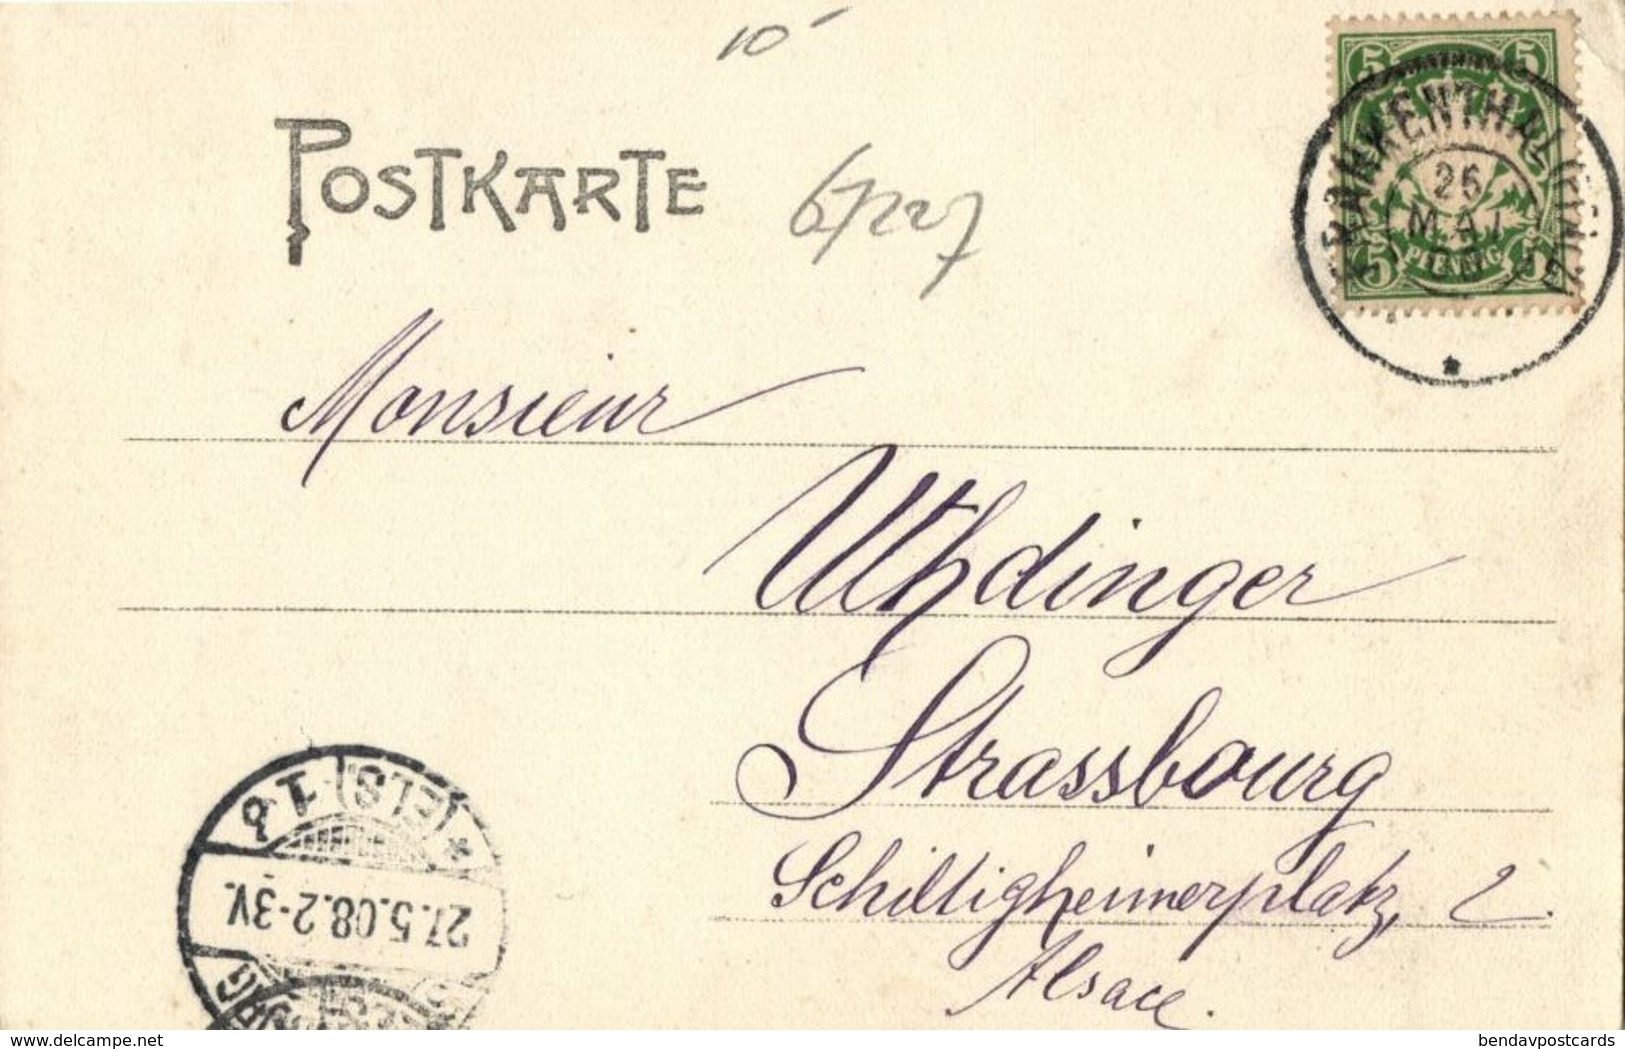 10-
POSTKARTE
6/227
5 5
FRANKENTHAL (PFALZ)
26
MAI
5 PFENNIG 5
Monsieur
Uthdinger
Strassbourg
Schiltigheimerplatz, 2.
Alsace.
* (ELS) 1 b
27.5.08.2-3V.
delcampe.net
bendavpostcards